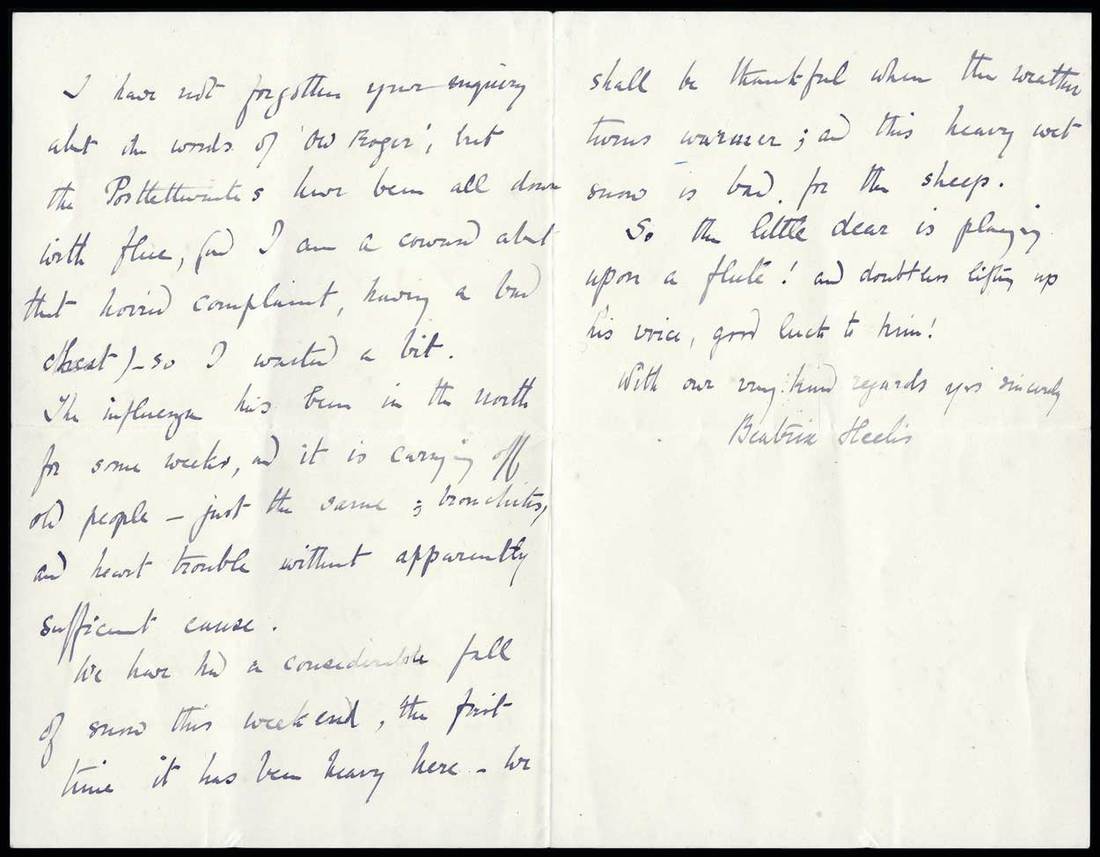 I have not forgotten your enquiry
about the words of 'Old Roger', but
the Postlethwaites have been all down
with flue, (and I am a coward about
that horrid complaint, having a bad
chest) – so I waited a bit.
The influenza has been in the north
for some weeks, and it is carrying off
old people – just the same; bronchitis,
and heart trouble without apparently
sufficient cause.
We have had a considerable fall
of snow this week end, the first
time it has been heavy here – we
shall be thankful when the weather
turns warmer; and this heavy wet
snow is bad for the sheep.
So the little dear is playing
upon a flute! and doubtless lifting up
his voice, good luck to him!
With our very kind regards yrs sincerely
Beatrix Heelis